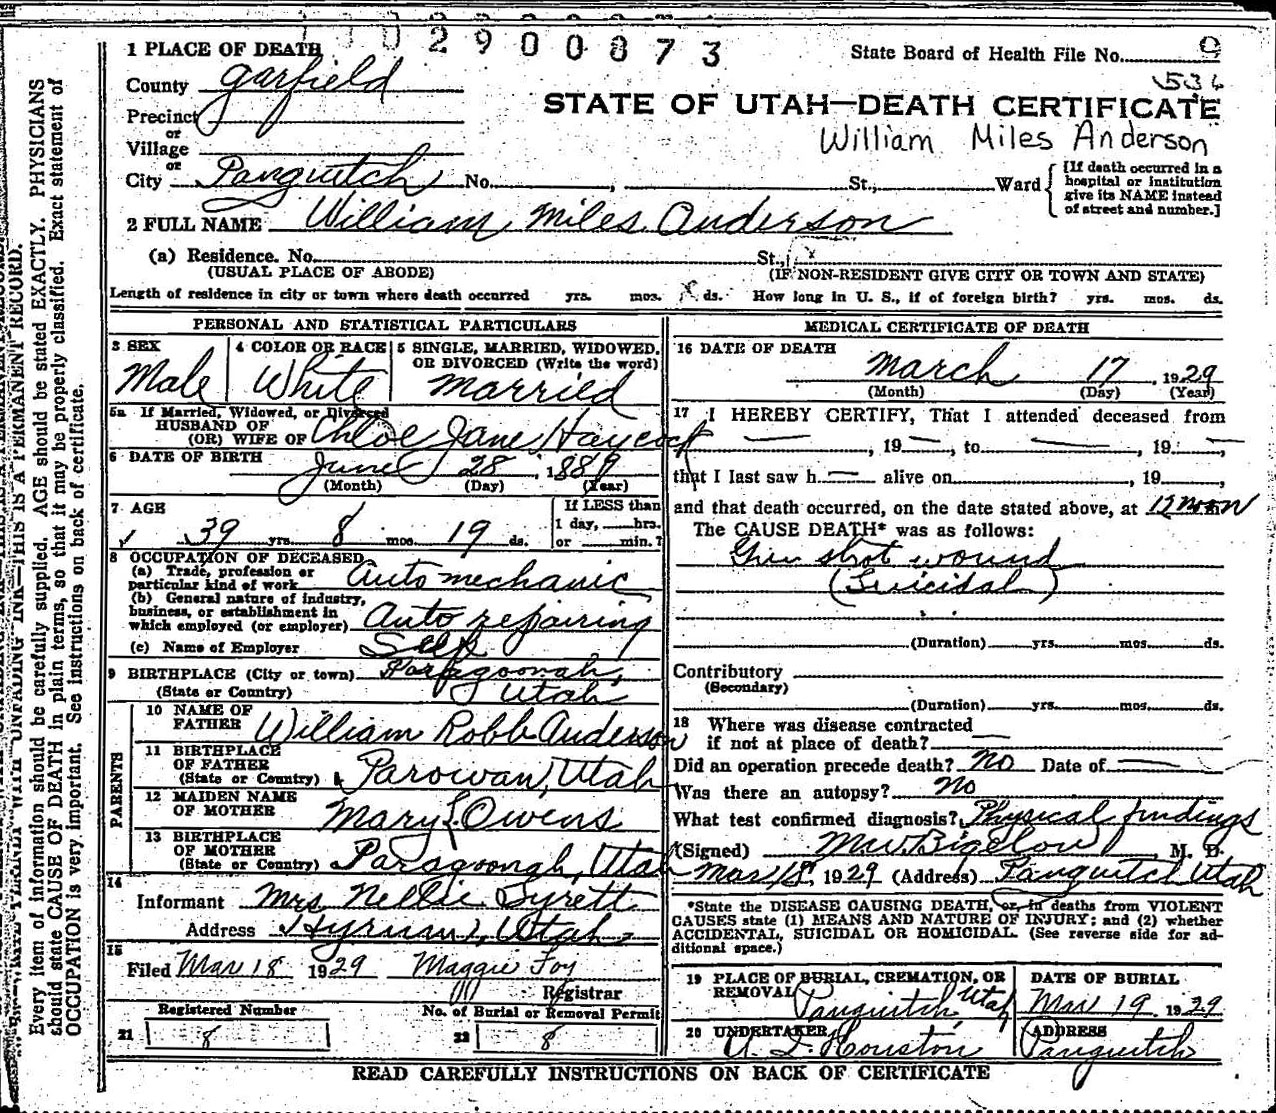 1 0 0 2 9 0 0 8 7 3
1 PLACE OF DEATH
State Board of Health File No. 9
County Garfield
536
STATE OF UTAH—DEATH CERTIFICATE
Precinct
or
William Miles Anderson
Village
or
City Panguitch No. , St., Ward
[If death occurred in a
hospital or institution
give its NAME instead
of street and number.]
2 FULL NAME William Miles Anderson
(a) Residence. No. St.,
(USUAL PLACE OF ABODE) (IF NON-RESIDENT GIVE CITY OR TOWN AND STATE)
Length of residence in city or town where death occurred yrs. mos. ds. How long in U. S., if of foreign birth? yrs. mos. ds.
PERSONAL AND STATISTICAL PARTICULARS
3 SEX
Male
4 COLOR OR RACE
White
5 SINGLE, MARRIED, WIDOWED,
OR DIVORCED (Write the word)
Married
5a If Married, Widowed, or Divorced
HUSBAND OF
(OR) WIFE OF Chloe Jane Haycock
6 DATE OF BIRTH June 28, 1889
(Month) (Day) (Year)
7 AGE
39 yrs. 8 mos. 19 ds.
If LESS than
1 day, hrs.
or min.?
8 OCCUPATION OF DECEASED
(a) Trade, profession or
particular kind of work Auto mechanic
(b) General nature of industry,
business, or establishment in
which employed (or employer) Auto repairing
(c) Name of Employer Self
9 BIRTHPLACE (City or town) Paragoonah,
(State or Country) Utah
PARENTS
10 NAME OF
FATHER William Robb Anderson
11 BIRTHPLACE
OF FATHER
(State or Country) Parowan, Utah
12 MAIDEN NAME
OF MOTHER Mary L. Owens
13 BIRTHPLACE
OF MOTHER
(State or Country) Paragoonah, Utah
14
Informant Mrs Nellie Syrett
Address Hyrum, Utah
15
Filed Mar 18 1929 Maggie Foy
Registrar
Registered Number
21 8
No. of Burial or Removal Permit
22 8
MEDICAL CERTIFICATE OF DEATH
16 DATE OF DEATH
March 17, 1929
(Month) (Day) (Year)
17 I HEREBY CERTIFY, That I attended deceased from
— , 19— , to — , 19 — ,
that I last saw h — alive on , 19 ,
and that death occurred, on the date stated above, at 12 noon
The CAUSE DEATH* was as follows:
Gun shot wound
(Suicidal)
(Duration) yrs. mos. ds.
Contributory
(Secondary)
(Duration) yrs. mos. ds.
18 Where was disease contracted
if not at place of death? —
Did an operation precede death? No Date of —
Was there an autopsy? No
What test confirmed diagnosis? Physical findings
(Signed) MW Bigelow M. D.
Mar 18, 1929 (Address) Panguitch Utah
*State the DISEASE CAUSING DEATH, or, in deaths from VIOLENT
CAUSES state (1) MEANS AND NATURE OF INJURY; and (2) whether
ACCIDENTAL, SUICIDAL OR HOMICIDAL. (See reverse side for ad-
ditional space.)
19 PLACE OF BURIAL, CREMATION, OR
REMOVAL
Panguitch Utah
DATE OF BURIAL
Mar 19 1929
20 UNDERTAKER
Houston
ADDRESS
Panguitch
READ CAREFULLY INSTRUCTIONS ON BACK OF CERTIFICATE
Every item of information should be carefully supplied. AGE should be stated EXACTLY. PHYSICIANS
should state CAUSE OF DEATH in plain terms, so that it may be properly classified. Exact statement of
OCCUPATION is very important. See instructions on back of certificate.